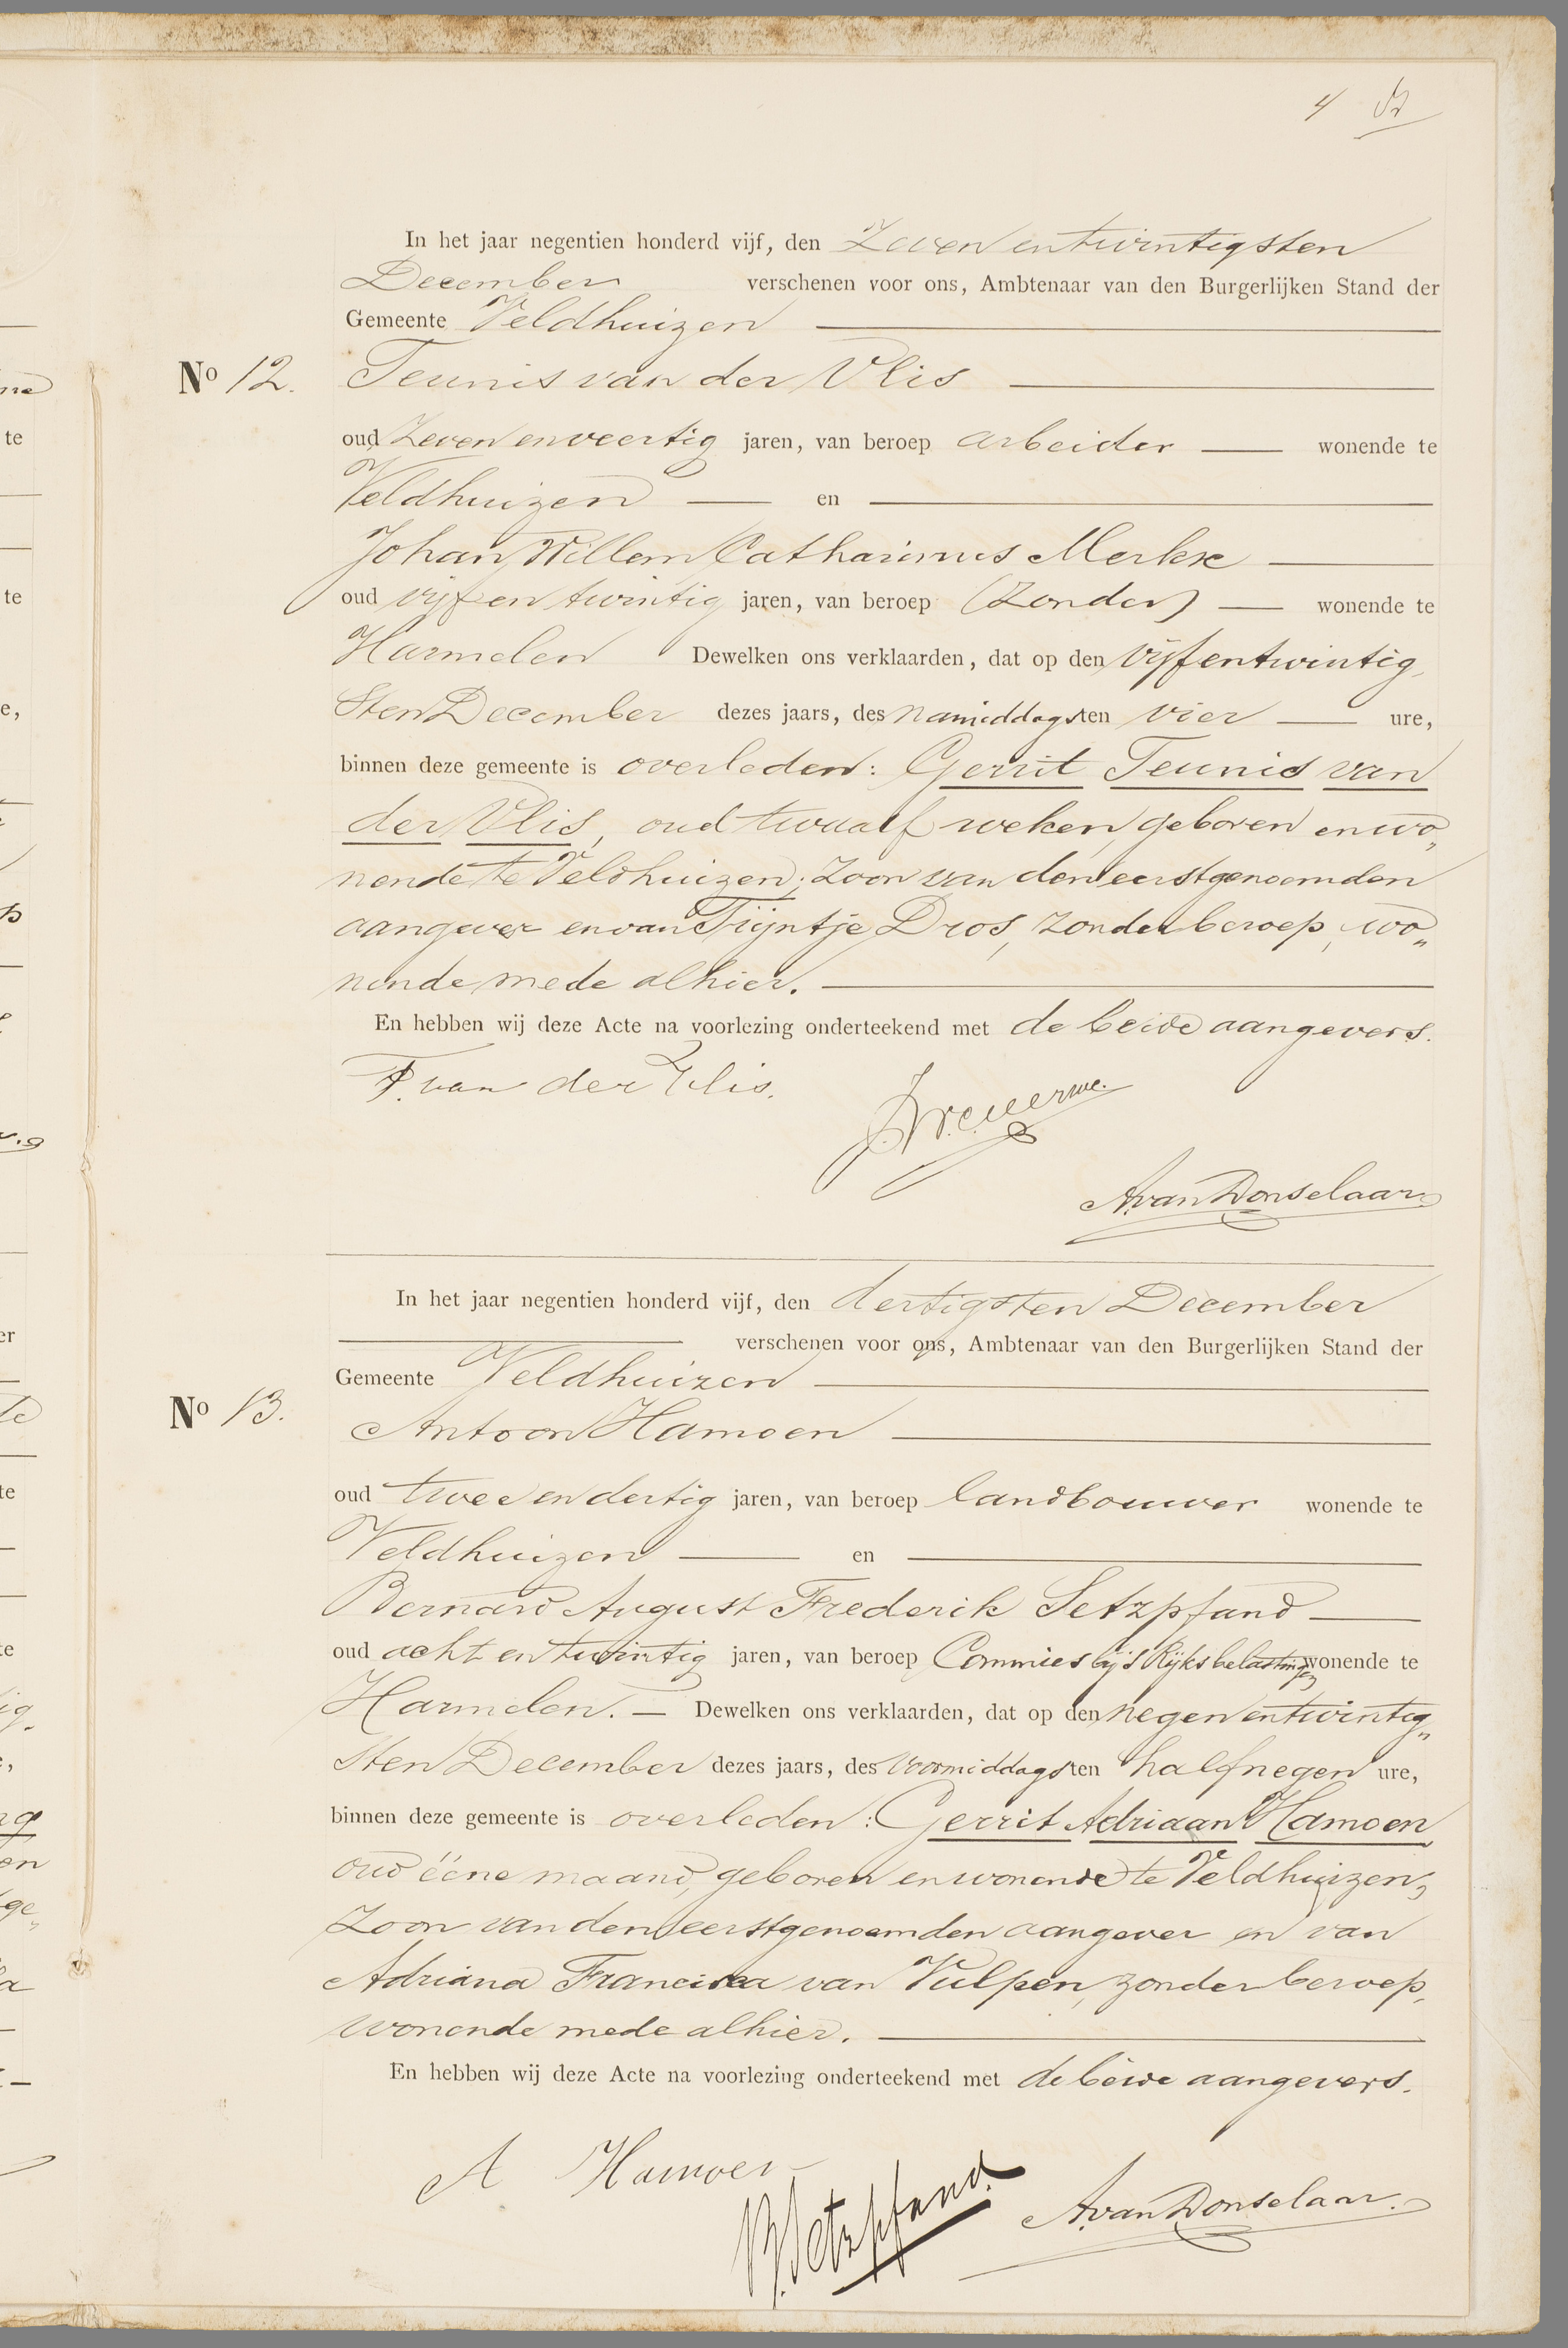 4
In het jaar negentien honderd vijf, den Zeven en twintigsten
December verschenen voor ons, Ambtenaar van den Burgerlijken Stand der
Gemeente Veldhuizen
No 12. Teunis van der Vlis
oud Zeven en veertig jaren, van beroep arbeider wonende te
Veldhuizen en
Johan Willem Catharinus Merkx
oud vijf en twintig jaren, van beroep (Zonder) wonende te
Harmelen Dewelken ons verklaarden, dat op den vijf en twintig
sten December dezes jaars, des namiddags ten vier ure,
binnen deze gemeente is overleden: Gerrit Teunis van
der Vlis, oud twaalf weken, geboren en wo„
nende te Veldhuizen; Zoon van den eerstgenoemden
aangever en van Trijntje Dros, zonder beroep, wo„
nende mede alhier.
En hebben wij deze Acte na voorlezing onderteekend met de beide aangevers.
T. van der Vlis.
A. van Donselaar
In het jaar negentien honderd vijf, den dertigsten December
verschenen voor ons, Ambtenaar van den Burgerlijken Stand der
Gemeente Veldhuizen
No 13. Antoon Hamoen
oud twee en dertig jaren, van beroep landbouwer wonende te
Veldhuizen en
Bernard August Frederik Setzpfand
oud acht en twintig jaren, van beroep Commies bij 's Rijks belastingen wonende te
Harmelen. Dewelken ons verklaarden, dat op den negen en twintig„
sten December dezes jaars, des voormiddags ten half negen ure,
binnen deze gemeente is overleden: Gerrit Adriaan Hamoen,
oud ééne maand, geboren en wonende te Veldhuizen,
Zoon van den eerstgenoemden aangever en van
Adriana Francisca van Vulpen, zonder beroep,
wonende mede alhier.
En hebben wij deze Acte na voorlezing onderteekend met de beide aangevers.
A Hamoen
B. Setzpfand.
A. van Donselaar.